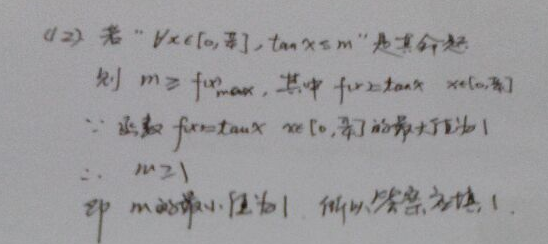 (12) 若“∀x∈[0,π/4], tanx≤m”是真命题
则 m≥f(x)max, 其中 f(x)=tanx x∈[0,π/4]
∵ 函数 f(x)=tanx x∈[0,π/4]的最大值为1
∴ m≥1
即 m的最小值为1 所以答案应填1.